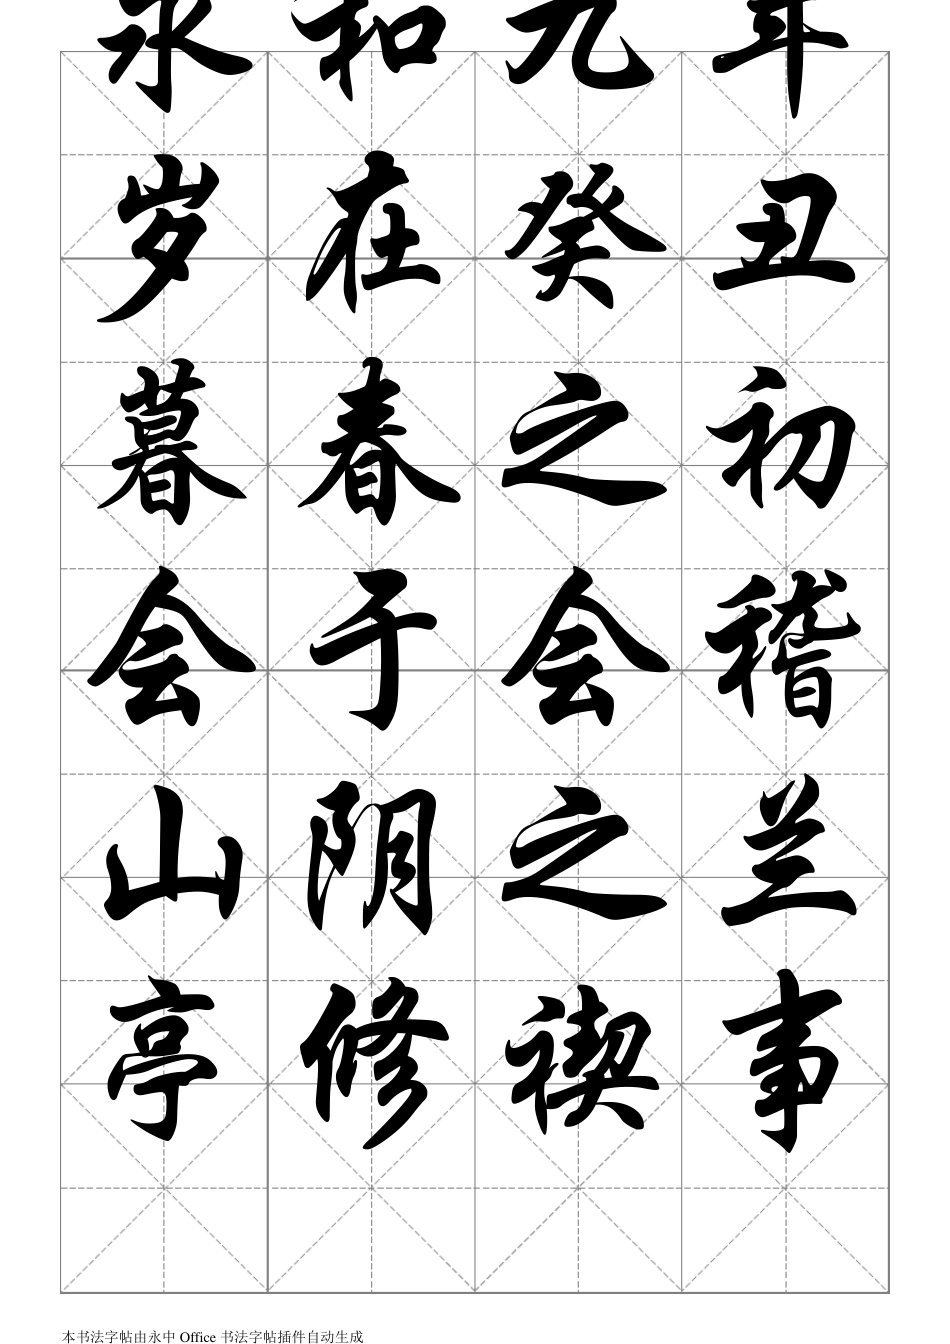 永和九年
岁在癸丑
暮春之初
会于会稽
山阴之兰
亭修禊事
本书法字帖由永中 Office 书法字帖插件自动生成